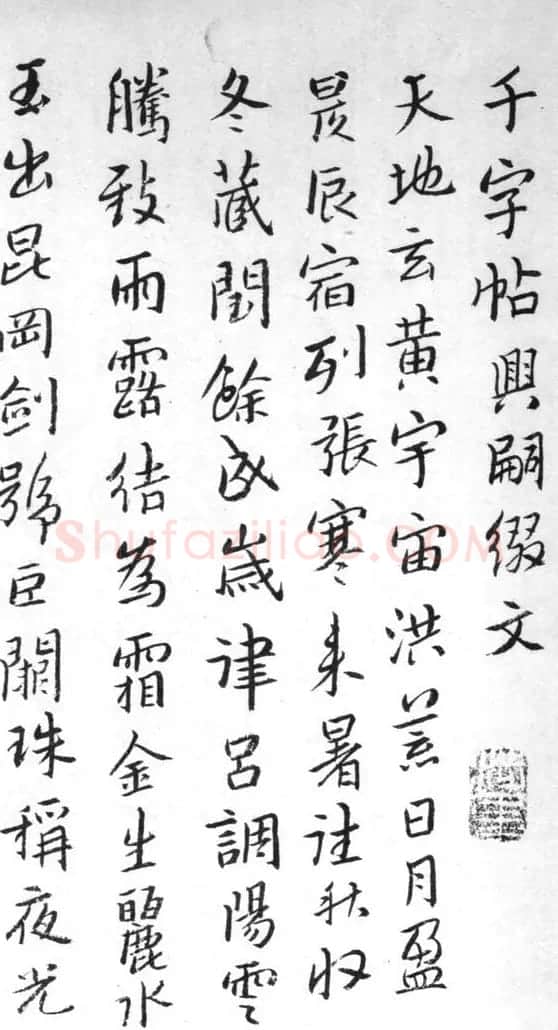 千字帖興嗣綴文
天地玄黃宇宙洪荒日月盈
昃辰宿列張寒来暑往秋收
冬藏閏餘成歲律呂調陽雲
騰致雨露结為霜金生麗水
玉出昆岡劍號巨闕珠稱夜光
Shufaziliao.COM